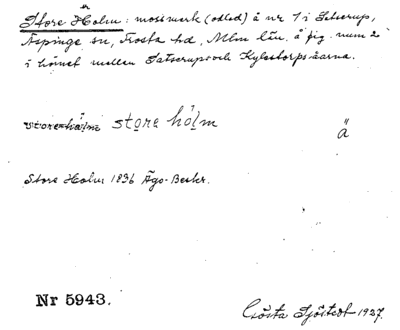 Store Holm: mossmark (odlad) å nr 1 i Satserup,
Äspinge sn, Frosta hd, Mlm län. å fig. num 2
i hörnet mellan Satserups och Kylstorpsåarna.
store hålm ä
Store Holm 1836 Ägo-Beskr.
Nr 5943.
Gösta Sjöstedt 1927.